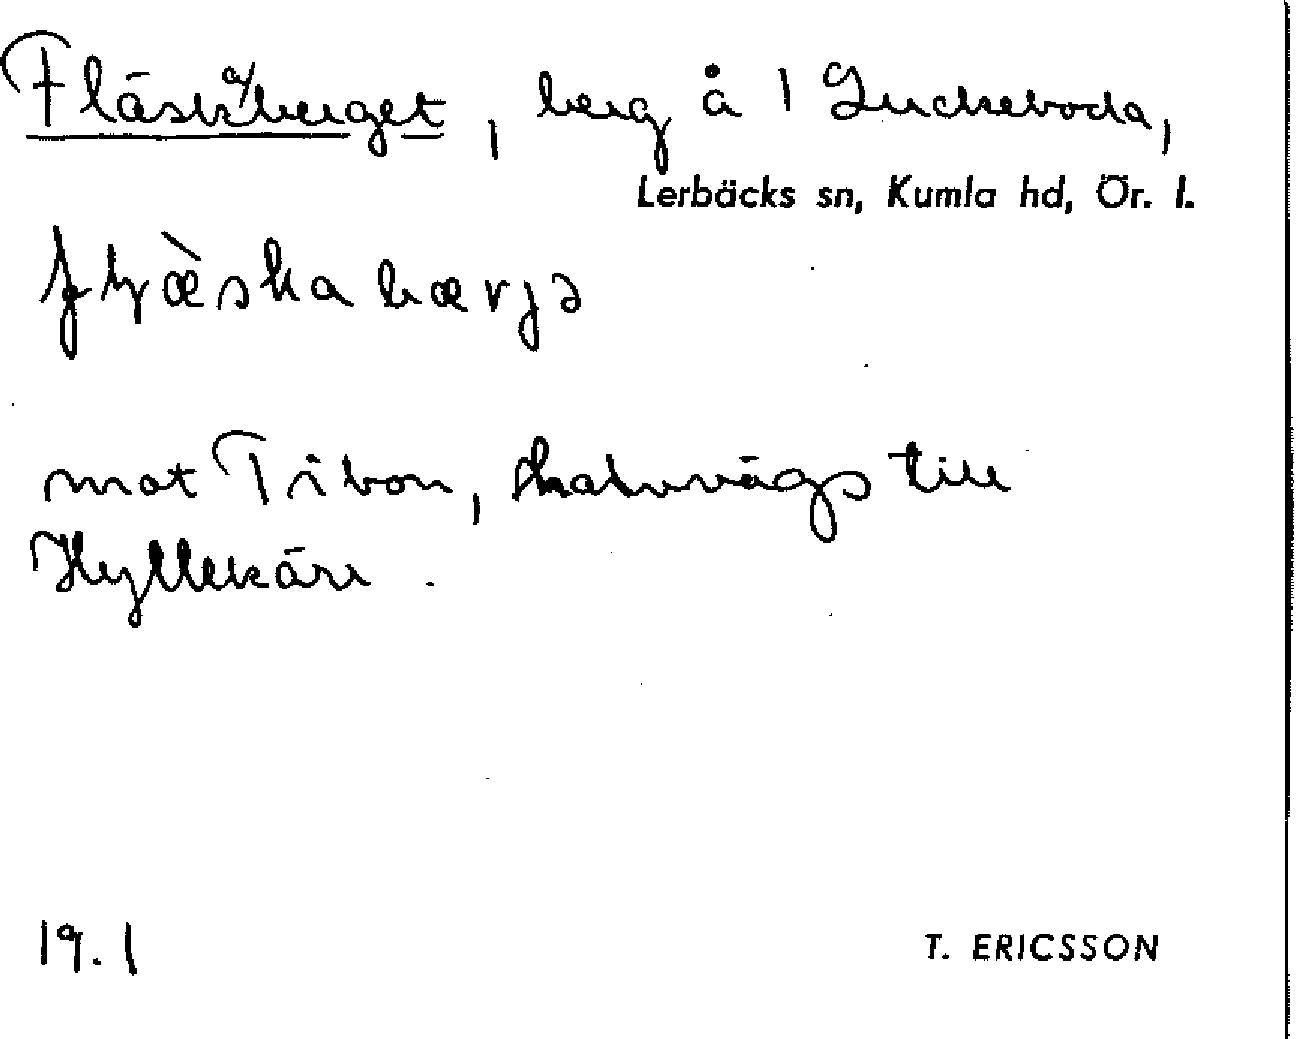 Fläskaberget, berg å 1 Luckeboda,
Lerbäcks sn, Kumla hd, Ör. l.
mot Tibon, halvvägs till
Hyllekärr.
19.1
T. ERICSSON